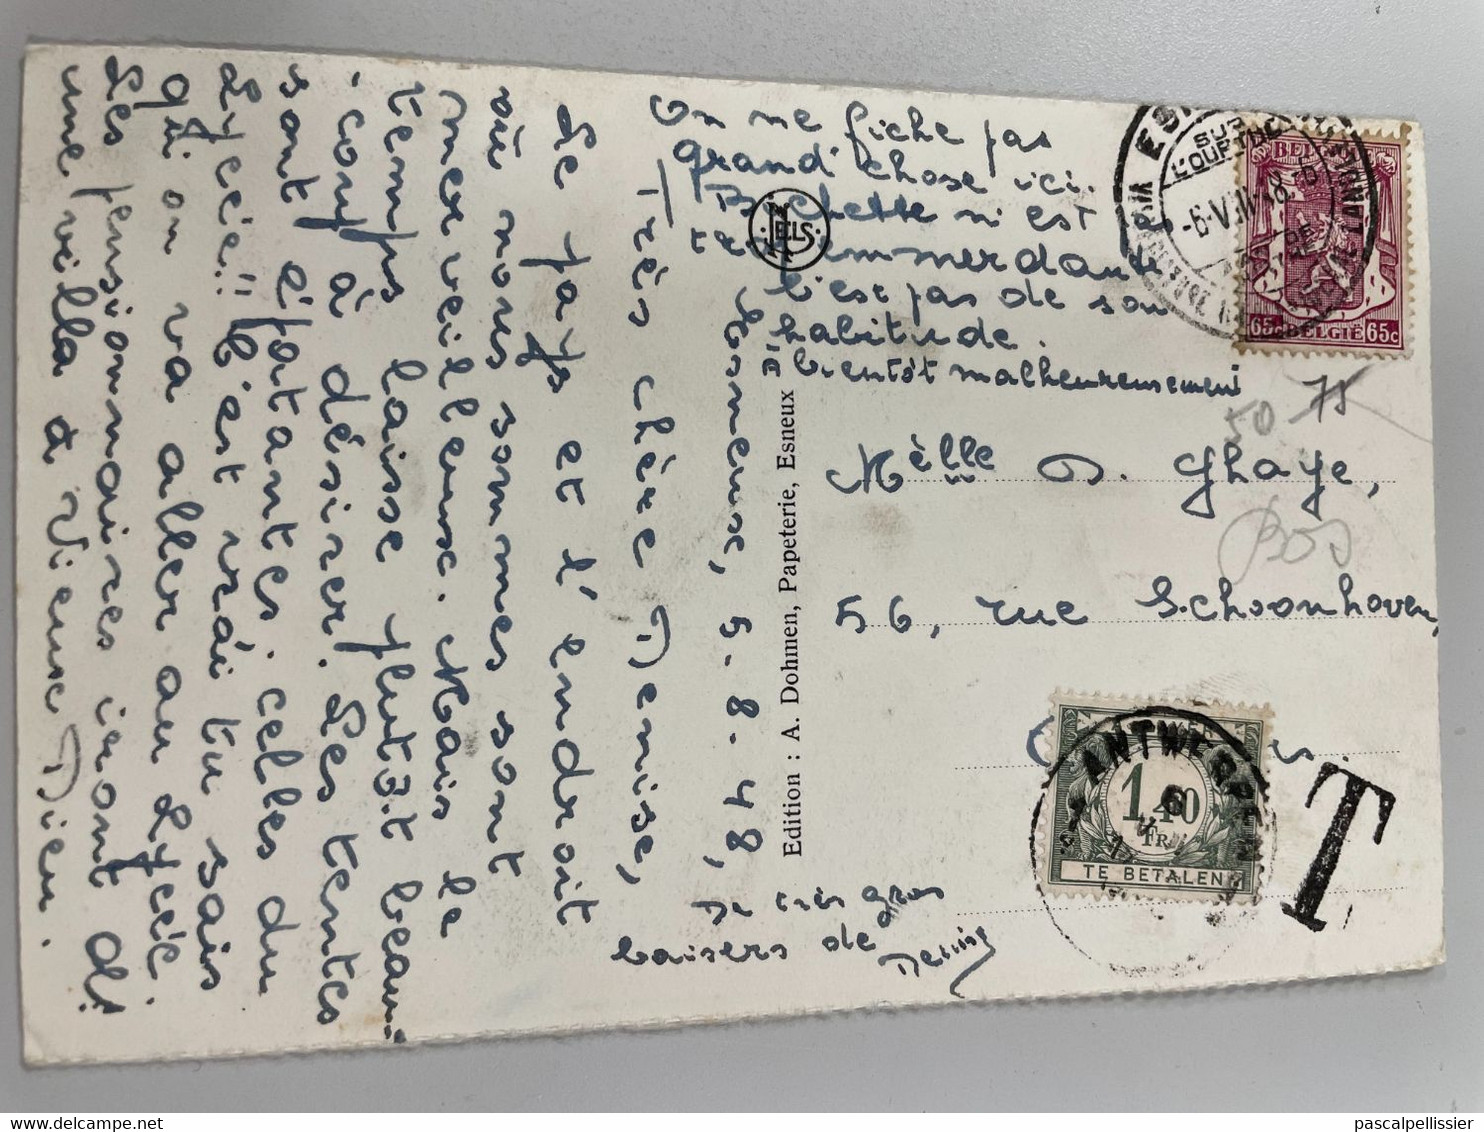 Esneux, 5.8.48,
Très chère Denise,
Le pays et l'endroit
où nous sommes sont
merveilleux. Mais le
temps laisse plutôt beau-
coup à désirer. Les tentes
sont épatantes. celles du
Lycée!! C'est vrai tu sais
qu'on va aller au Lycée.
Les pensionnaires iront ds
une villa à Vieux Dieu.
On ne fiche pas
grand'chose ici.
n'est
emmerdante
C'est pas de son
habitude.
à bientôt malheureusement
De très gros
baisers de
Denise
Edition : A. Dohmen, Papeterie, Esneux
NELS
Melle D. Ghaye,
56, rue Schoonhoven,
BELGIQUE
65c BELGIE 65c
SUR
L'OURTHE
75
50
ANTWERPEN
1,40
FR
TE BETALEN
T
delcampe.net
pascalpellissier